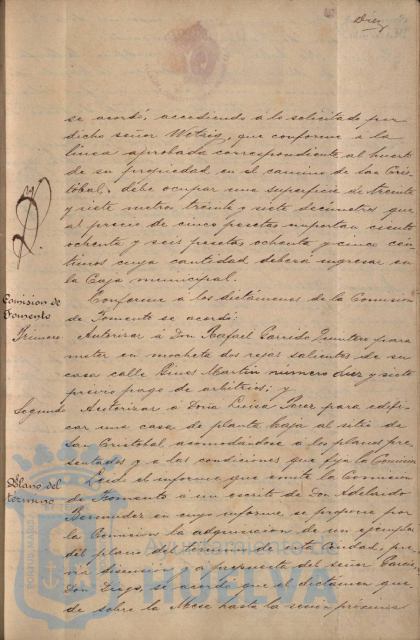 Diez
se acordó, accediendo á lo solicitado por
dicho señor Wetzig, que conforme á la
linea aprobada correspondiente al huerto
de su propiedad en el camino de San Cris-
tobal, debe ocupar una superficie de treinta
y siete metros treinta y siete decímetros que
al precio de cinco pesetas importan ciento
ochenta y seis pesetas ochenta y cinco cén-
timos cuya cantidad deberá ingresar en
la Caja municipal.
Comision de
Fomento
Conforme á los dictámenes de la Comision
de Fomento se acordó:
Primero Autorizar á Don Rafael Garrido Quintero para
meter en mocheta dos rejas salientes de su
casa calle Gines Martin número diez y siete
prévio pago de arbitrios; y
Segundo Autorizar á Doña Luisa Perez para edifi-
car una casa de planta baja al sitio de
San Cristobal acomodándose á los planos pre-
sentados y á las condiciones que fija la Comision
Plano del
término
Leido el informe que emite la Comision
de Fomento á un escrito de Don Adelardo
Bermudez en cuyo informe, se propone por
la Comision la adquisicion de un ejemplar
del plano del término de esta Ciudad, pré-
via discusion y á propuesta del señor Garcia,
Don Diego, se acordó que el dictamen que-
de sobre la Mesa hasta la sesion próxima
Ayuntamiento de
HUELVA